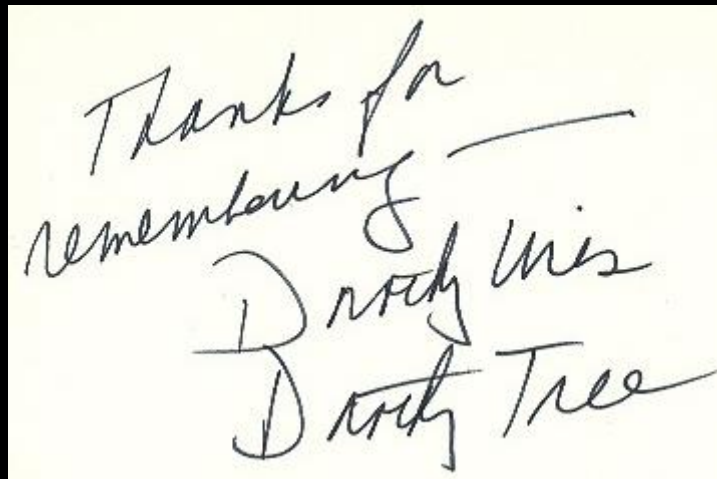 Thanks for
remembering —
Dorothy
Dorothy Tree